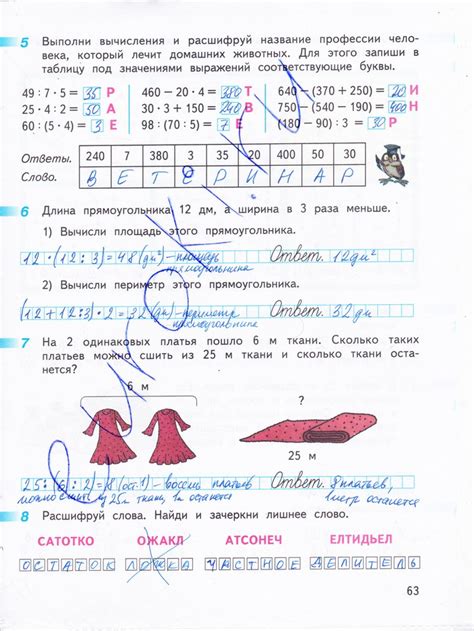 5 Выполни вычисления и расшифруй название профессии чело-
века, который лечит домашних животных. Для этого запиши в
таблицу под значениями выражений соответствующие буквы.
49 : 7 · 5 = 35 Р 460 − 20 · 4 = 380 Т 640 − (370 + 250) = 20 И
25 · 4 : 2 = 50 А 30 · 3 + 150 = 240 В 750 − (540 − 190) = 400 Н
60 : (5 · 4) = 3 Е 98 : (70 : 5) = 7 Е (180 − 90) : 3 = 30 Р
Ответы. 240 7 380 3 35 20 400 50 30
Слово. В Е Т Е Р И Н А Р
6 Длина прямоугольника 12 дм, а ширина в 3 раза меньше.
1) Вычисли площадь этого прямоугольника.
12 · (12 : 3) = 48 (дм²) – площадь Ответ. 12 дм²
прямоугольника
2) Вычисли периметр этого прямоугольника.
(12 + 12 : 3) · 2 = 32 (дм) – периметр Ответ. 32 дм
прямоугольника
7 На 2 одинаковых платья пошло 6 м ткани. Сколько таких
платьев можно сшить из 25 м ткани и сколько ткани оста-
нется?
6 м
?
25 м
25 : (6 : 2) = 8 (ост. 1) – восемь платьев Ответ. 8 платьев,
можно сшить из 25м ткани, 1м останется 1 метр останется
8 Расшифруй слова. Найди и зачеркни лишнее слово.
САТОТКО ОЖАКЛ АТСОНЕЧ ЕЛТИДЬЕЛ
ОСТАТОК ЛОЖКА ЧАСТНОЕ ДЕЛИТЕЛЬ
63